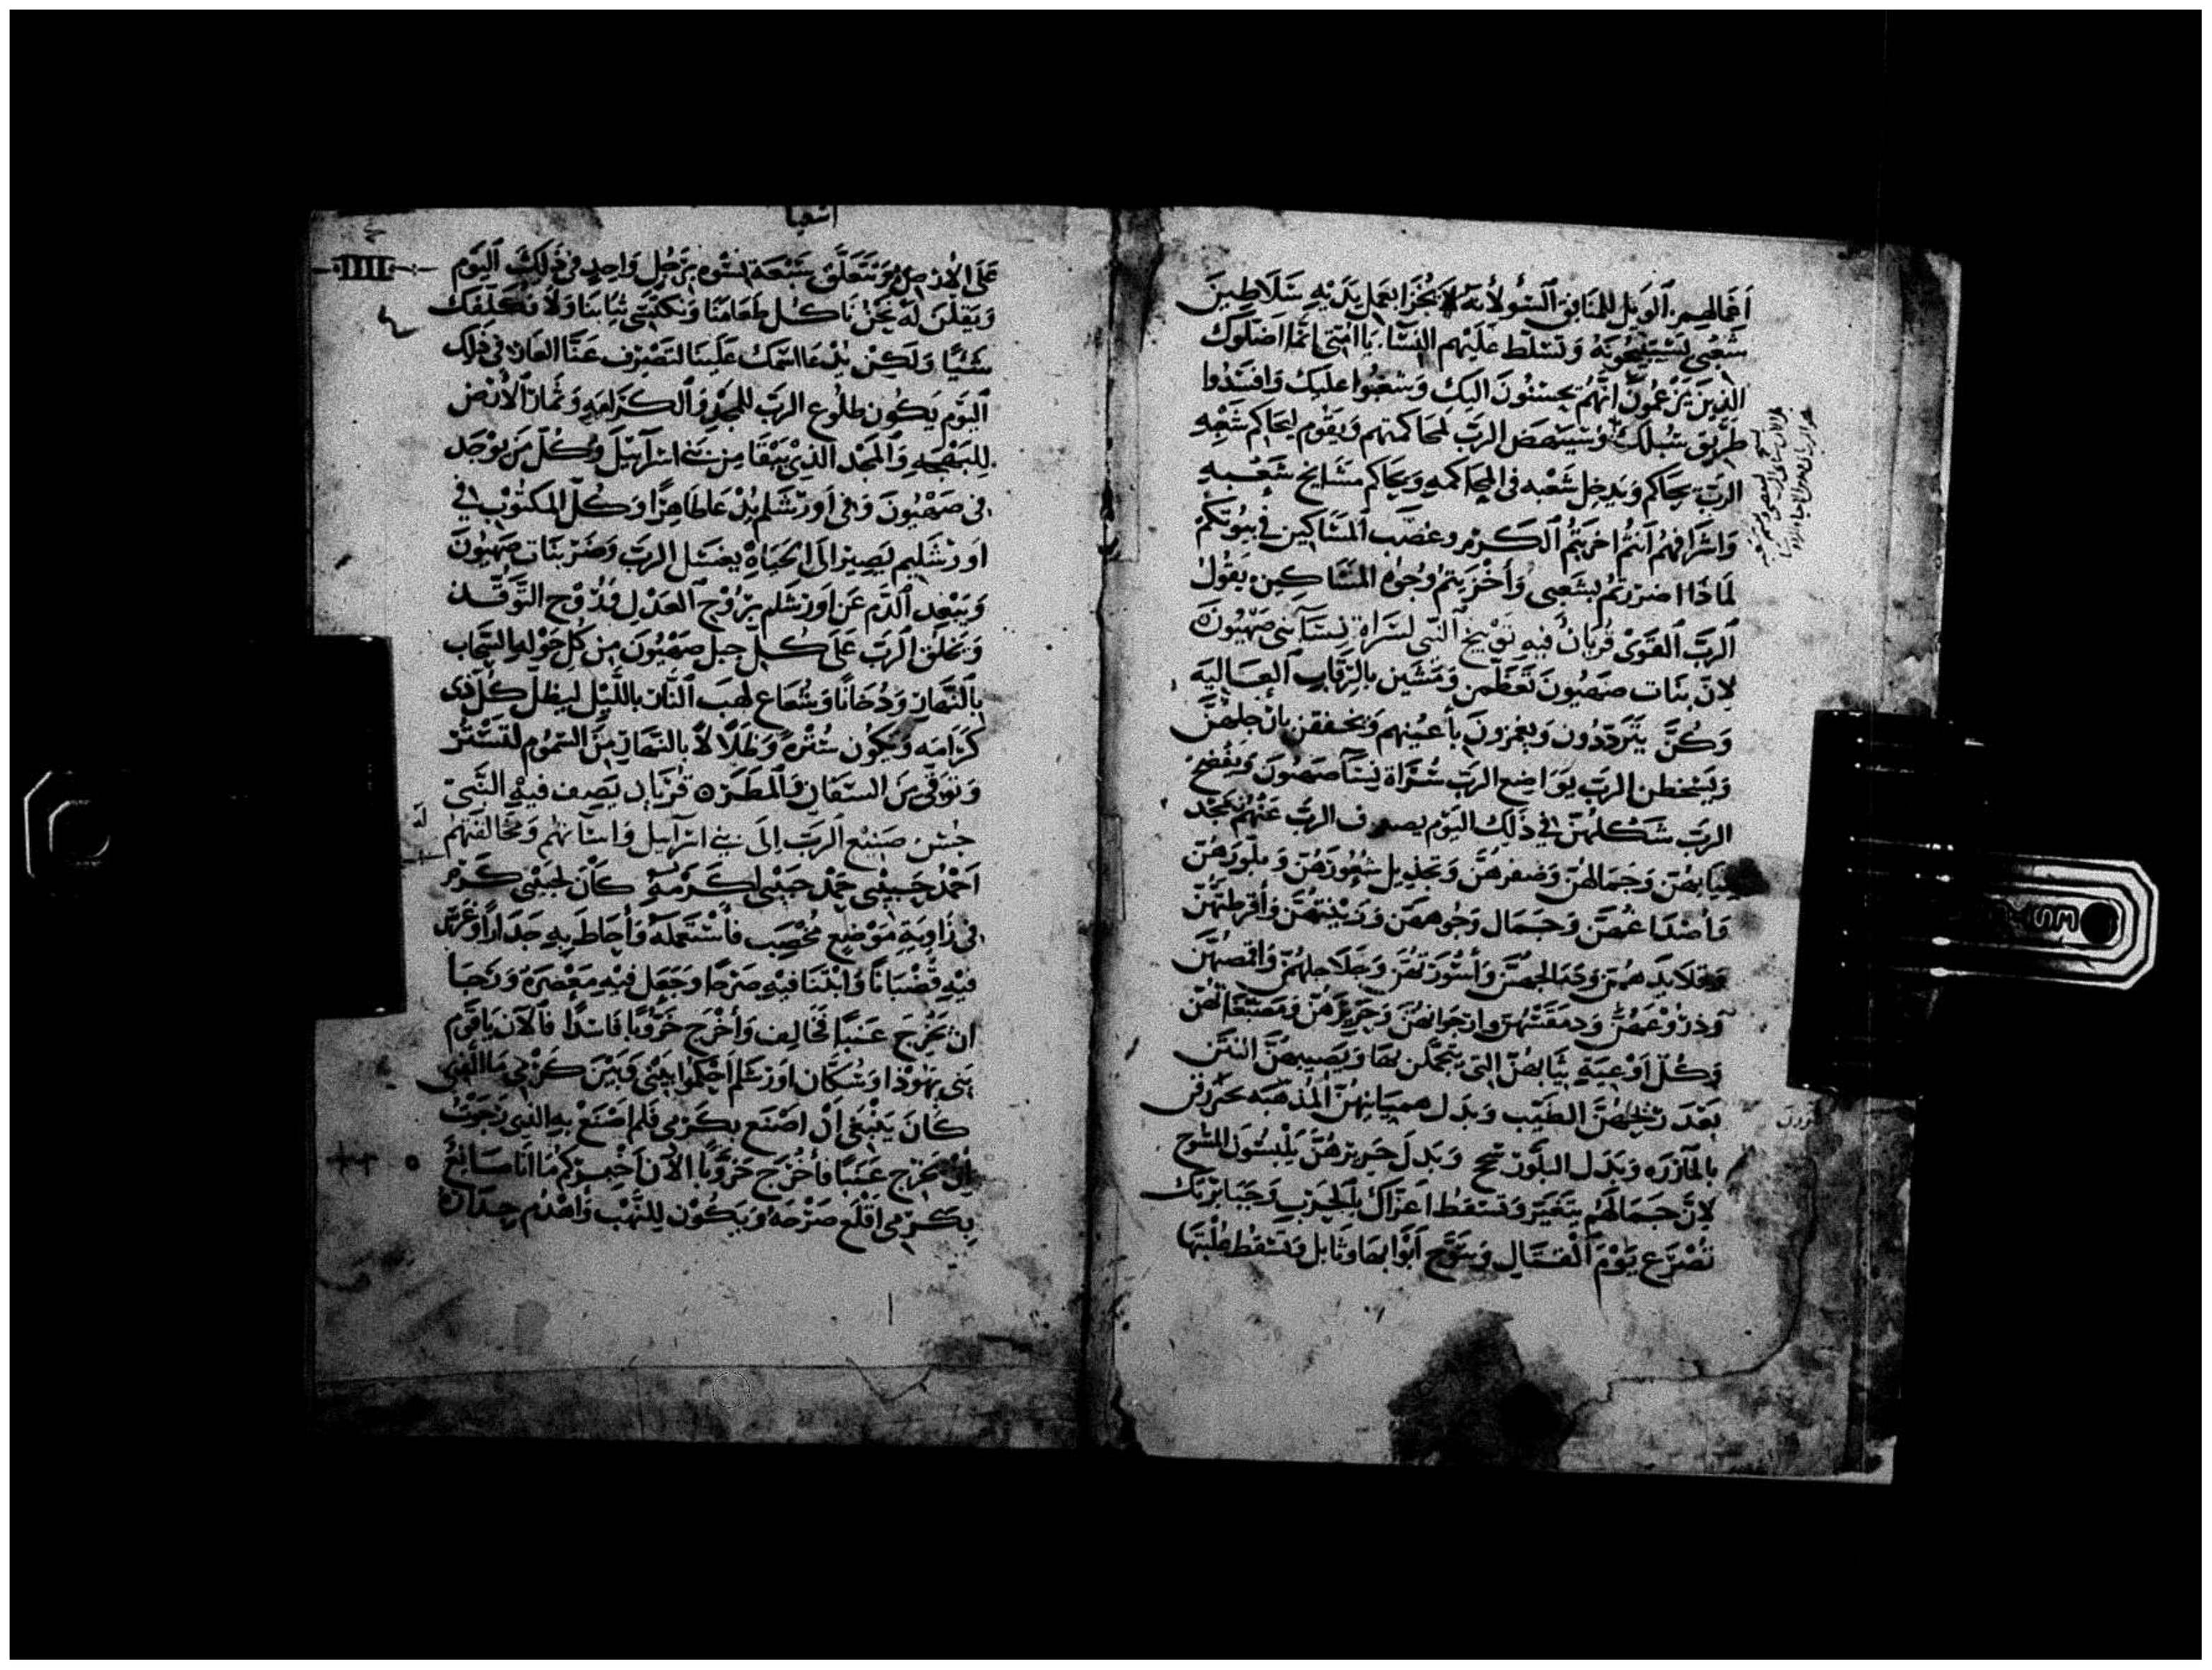 أعمالهم. الويل للمنافق السؤ لأنه يجزا بعمل يديه سلاطين
شعبي تستبيحونه وتتسلط عليهم النسا. يا امتي انما اضلوك
الذين يزعمون انهم يحسنون اليك وشعبوا عليك وافسدوا
طريق سبلك وسينهض الرب لمحاكمتهم ويقوم ليحاكم شعبه
الرب يحاكم ويدخل شعبه في المحاكمه ويحاكم مشايخ شعبه
واشرافهم انتم اخربتم الكرم وغصب المساكين في بيوتكم
لماذا اضررتم بشعبي وأخزيتم وجوه المساكين يقول
الرب القوى قربان فيه توبيخ النبي لسراة نسآ بني صهيون
لان بنات صهيون تعظمن ومشين بالرقاب العاليه
وكن يترددون ويغمزون بأعينهم ويخفقن بارجلهن
ويسخطن الرب يواضع الرب سراة نسآ صهيون ويفضح
الرب شكلهن في ذلك اليوم يصرف الرب عنهن مجد
ثيابهن وجمالهن وضفرهن وتجديل شعورهن وبلورهن
وأصداغهن وجمال وجوههن وزينتهن وأقرطتهن
وقلايدهن ودمالجهن وأسورتهن وجلاجلهن واقمصتهن
ودروعهن ودمقسهن وارجوانهن وحريرهن ومصبغاتهن
وكل اوعية ثيابهن التي يتجملن بها ويصيبهن النتن
بعد ريحهن الطيب وبدل همياينهن المذهبه يحررن
وبدل البلور تمح وبدل حريرهن يلبسون المسوح
لان جمالهم يتغير وتسقط اعزاك بالحرب وجبابرتك
تصرع يوم القتال وتنوح أبوابها وتسقط
اشعيا
على الارض ويتعلق سبعة نسوه برجل واحد في ذلك اليوم
ويقلن له نحن ناكل طعامنا ونكتسي ثيابنا ولا نكلفك
شيئا ولكن يدعا اسمك علينا لتصرف عنا العار في ذلك
اليوم يكون طلوع الرب للمجد والكرامه وثمار الارض
للبهجه والمجد الذي يبقا من بني اسرآييل وكل من يوجد
في صهيون وفي اورشلم يدعا طاهرا وكل المكتوب في
اورشليم يصير الى الحياه يغسل الرب وضر بنات صهيون
ويبعد الدم عن اورشلم بروح العدل وروح التوقد
ويخلق الرب على كل جبل صهيون من كل حوله السحاب
بالنهار ودخانا وشعاع لهب النار بالليل ليظل كل ذي
كرامه ويكون ستره وظلالا بالنهار من السموم لتستتر
وتوقى من والمطر ٥ قربان يصف فيه النبي
حسن صنيع الرب إلى بني اسرآييل واسآتهم ومخالفتهم
احمد حبيبي حمد حبيبي لكرمه كان لحبيبي كرم
في زاوية موضع مخصب فاستعمله وأحاط به جدارا وغرس
فيه قضبانا وابتنا فيه صرحا وجعل فيه معصرة ورجا
ان يخرج عنبا فخالف وأخرج خروبا فاسدا فالآن يا قوم
بني يهوذا وسكان اورشلم احكموا بيني وبين كرمي ما الذي
كان ينبغي أن اصنع بكرمي فلم اصنع به الذي رجوت
أن يخرج عنبا فأخرج خروبا الآن اخبركم ما انا صانع
بكرمي اقلع صرحه ويكون للنهب واهدم جداره